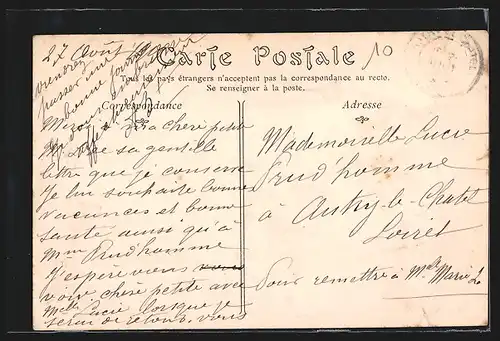 27 Août
Carte Postale
10
Tous les pays étrangers n'acceptent pas la correspondance au recto.
Se renseigner à la poste.
Correspondance
Adresse
viendrez
passer une
bonne journée
chère petite
sa gentille
lettre que je conserve
Je lui souhaite bonne
vacances et bonne
santé ainsi qu'à
Mme Prud'homme
J'espère viens vous
voir chère petite avec
Melle Lucie lorsque je
serai de retour, vous
Mademoiselle Lucie
Prud'homme
à Autry-le-Chatel
Loiret
Pour remettre à Mlle Marie L.